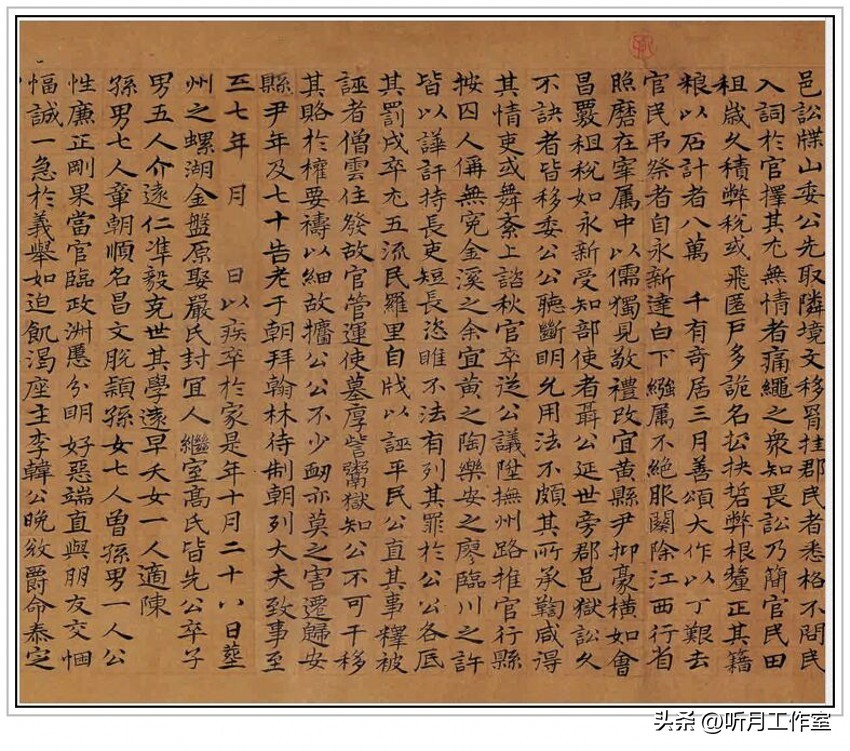 邑訟牒山委公先取隣境文移罥挂郡民者悉格不問民
入詞於官擇其尤無情者痛繩之衆知畏訟乃簡官民田
租歲久積弊稅或飛匿戶多詭名公抉哲弊根釐正其籍
粮以石計者八萬 千有奇居三月善頌大作以丁艱去
官民弔祭者自永新達白下繈属不絶服闋除江西行省
照磨在宰属中以儒獨見敬禮改宜黄縣尹抑豪橫如會
昌覈租稅如永新受知部使者聶公延世旁郡邑獄訟久
不訣者皆移委公公聽斷明允用法不頗其所承鞫咸得
其情吏或舞紊上諮秋官卒從公議陞撫州路推官行縣
按囚人偁無冤金溪之余宜黄之陶樂安之廖臨川之許
皆以譁訐持長吏短長恣睢不法有列其罪於公公各厎
其罰戍卒尤五流民羅里自戕以誣平民公直其事釋被
誣者僧雲住發故官管運使墓厚訾鬻獄知公不可干移
其賂於權要禱以細故擠公公不少衂亦莫之害遷歸安
縣尹年及七十告老于朝拜翰林待制朝列大夫致事至
三七年 月 日以疾卒於家是年十月二十八日塟
州之螺湖金盤原娶嚴氏封宜人繼室髙氏皆先公卒子
男五人介遠仁準毅克世其學遠早夭女一人適陳
孫男七人章朝順名昌文脫穎孫女七人曽孫男一人公
性廉正剛果當官臨政淵慝分明好惡端直與朋友交悃
愊誠一急於義舉如迫飢渴座主李韓公晩敓爵命泰定
头条 @听月工作室